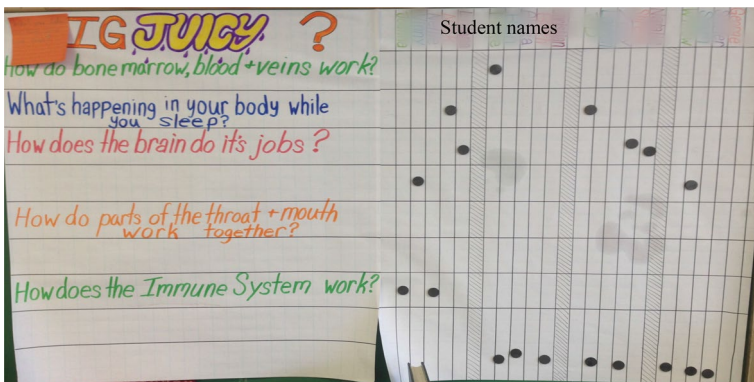 IG JUICY ?
Student names
How do bone marrow, blood + veins work?
What's happening in your body while
you sleep?
How does the brain do it's jobs?
How do parts of the throat + mouth
work together?
How does the Immune System work?